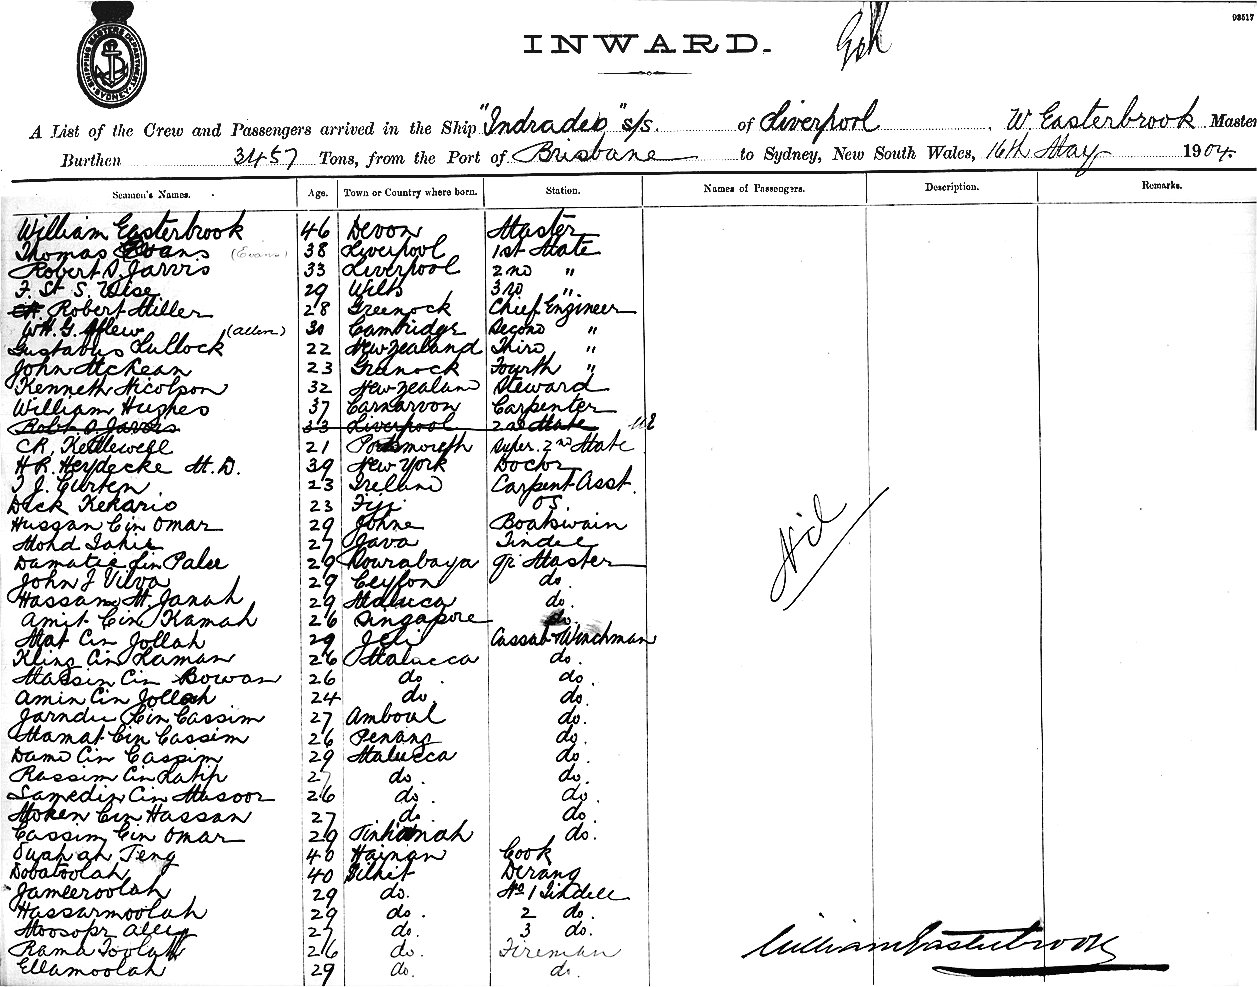 93517
SHIPPING MASTERS DEPARTMENT SYDNEY
INWARD.
A List of the Crew and Passengers arrived in the Ship "Indradeo" s/s. of Liverpool, W Easterbrook Master
Burthen 3457 Tons, from the Port of Brisbane to Sydney, New South Wales, 16th May 1904.
Seamen's Names. Age. Town or Country where born. Station. Names of Passengers. Description. Remarks.
William Easterbrook 46 Devon Master
Thomas Evans (Evans) 38 Liverpool 1st Mate
Robert D. Jarvis 33 Liverpool 2nd "
F. St S. Wise 29 Wilts 3rd "
Robert Miller 28 Greenock Chief Engineer
W.H.G. (allen) 30 Cambridge Second "
Gustavus Lullock 22 New Zealand Third "
John McKean 23 Greenock Fourth "
Kenneth Nicolson 32 New Zealand Steward
William Hughes 37 Carnarvon Carpenter
Robt D Jarvis 33 Liverpool 2nd Mate
CR. Kettlewell 21 Portsmouth Super. 2nd Mate
H R. Heydecke M.D. 39 New York Doctor
T J. Curten 23 Ireland Carpent Asst.
Dick Kekario 23 Fiji O.S.
Hussan Bin Omar 29 Johne Boatswain
Mohd Tahir 27 Java Tindel
Damatea Bin Palee 29 Sourabaya Qr Master
John J Vilva 29 Ceylon do.
Hassan M. Janah 29 Malacca do.
Amit Bin Kamah 26 Singapore do.
Mat Bin Jollah 29 Cassab & Winchman
Kling Bin Laman 26 Malacca do.
Massin Bin Bowan 26 do. do.
Amin Bin Jollah 24 do. do.
Jarndie Bin Cassim 27 Amboul do.
Mamat Bin Cassim 26 Penang do.
Damo Bin Cassim 29 Malacca do.
Rassim Bin Latip 27 do. do.
Samedin Bin Masoor 26 do. do.
Moken Bin Hassan 27 do. do.
Cassim Bin Omar 29 do.
Ah Teng 40 Hainan Cook
Dobatoolah 40 Silhit Derang
Jameeroolah 29 do. No 1 Tindell
Hassarmoolah 29 do. 2 do.
Moosopr Alley 27 do. 3 do.
Rama Toolah 26 do. Fireman
Ellamoolah 29 do. do.
Nil
William Easterbrook